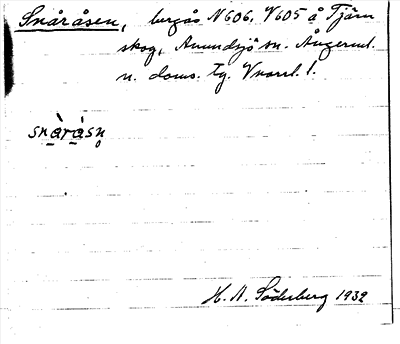 Snåråsen, bergås N606, V605 å Tjärn
skog, Anundsjö sn. Ångerml.
n. doms. tg. Vnorrl. l.
snàràsn̥
H. A. Söderberg 1932